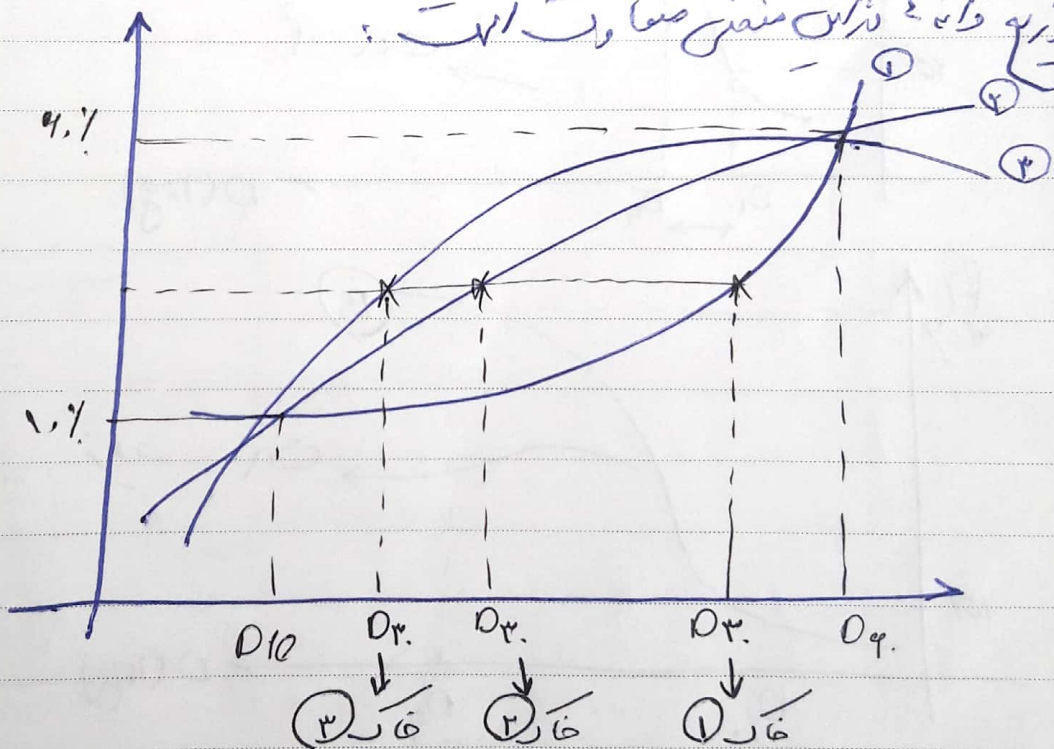 دانه ؛ در این منحنی متفاوت است :
①
②
③
۶۰٪
۱۰٪
D10 D۳۰ D۳۰ D۳۰ D۶۰
خاک ③ خاک ② خاک ①